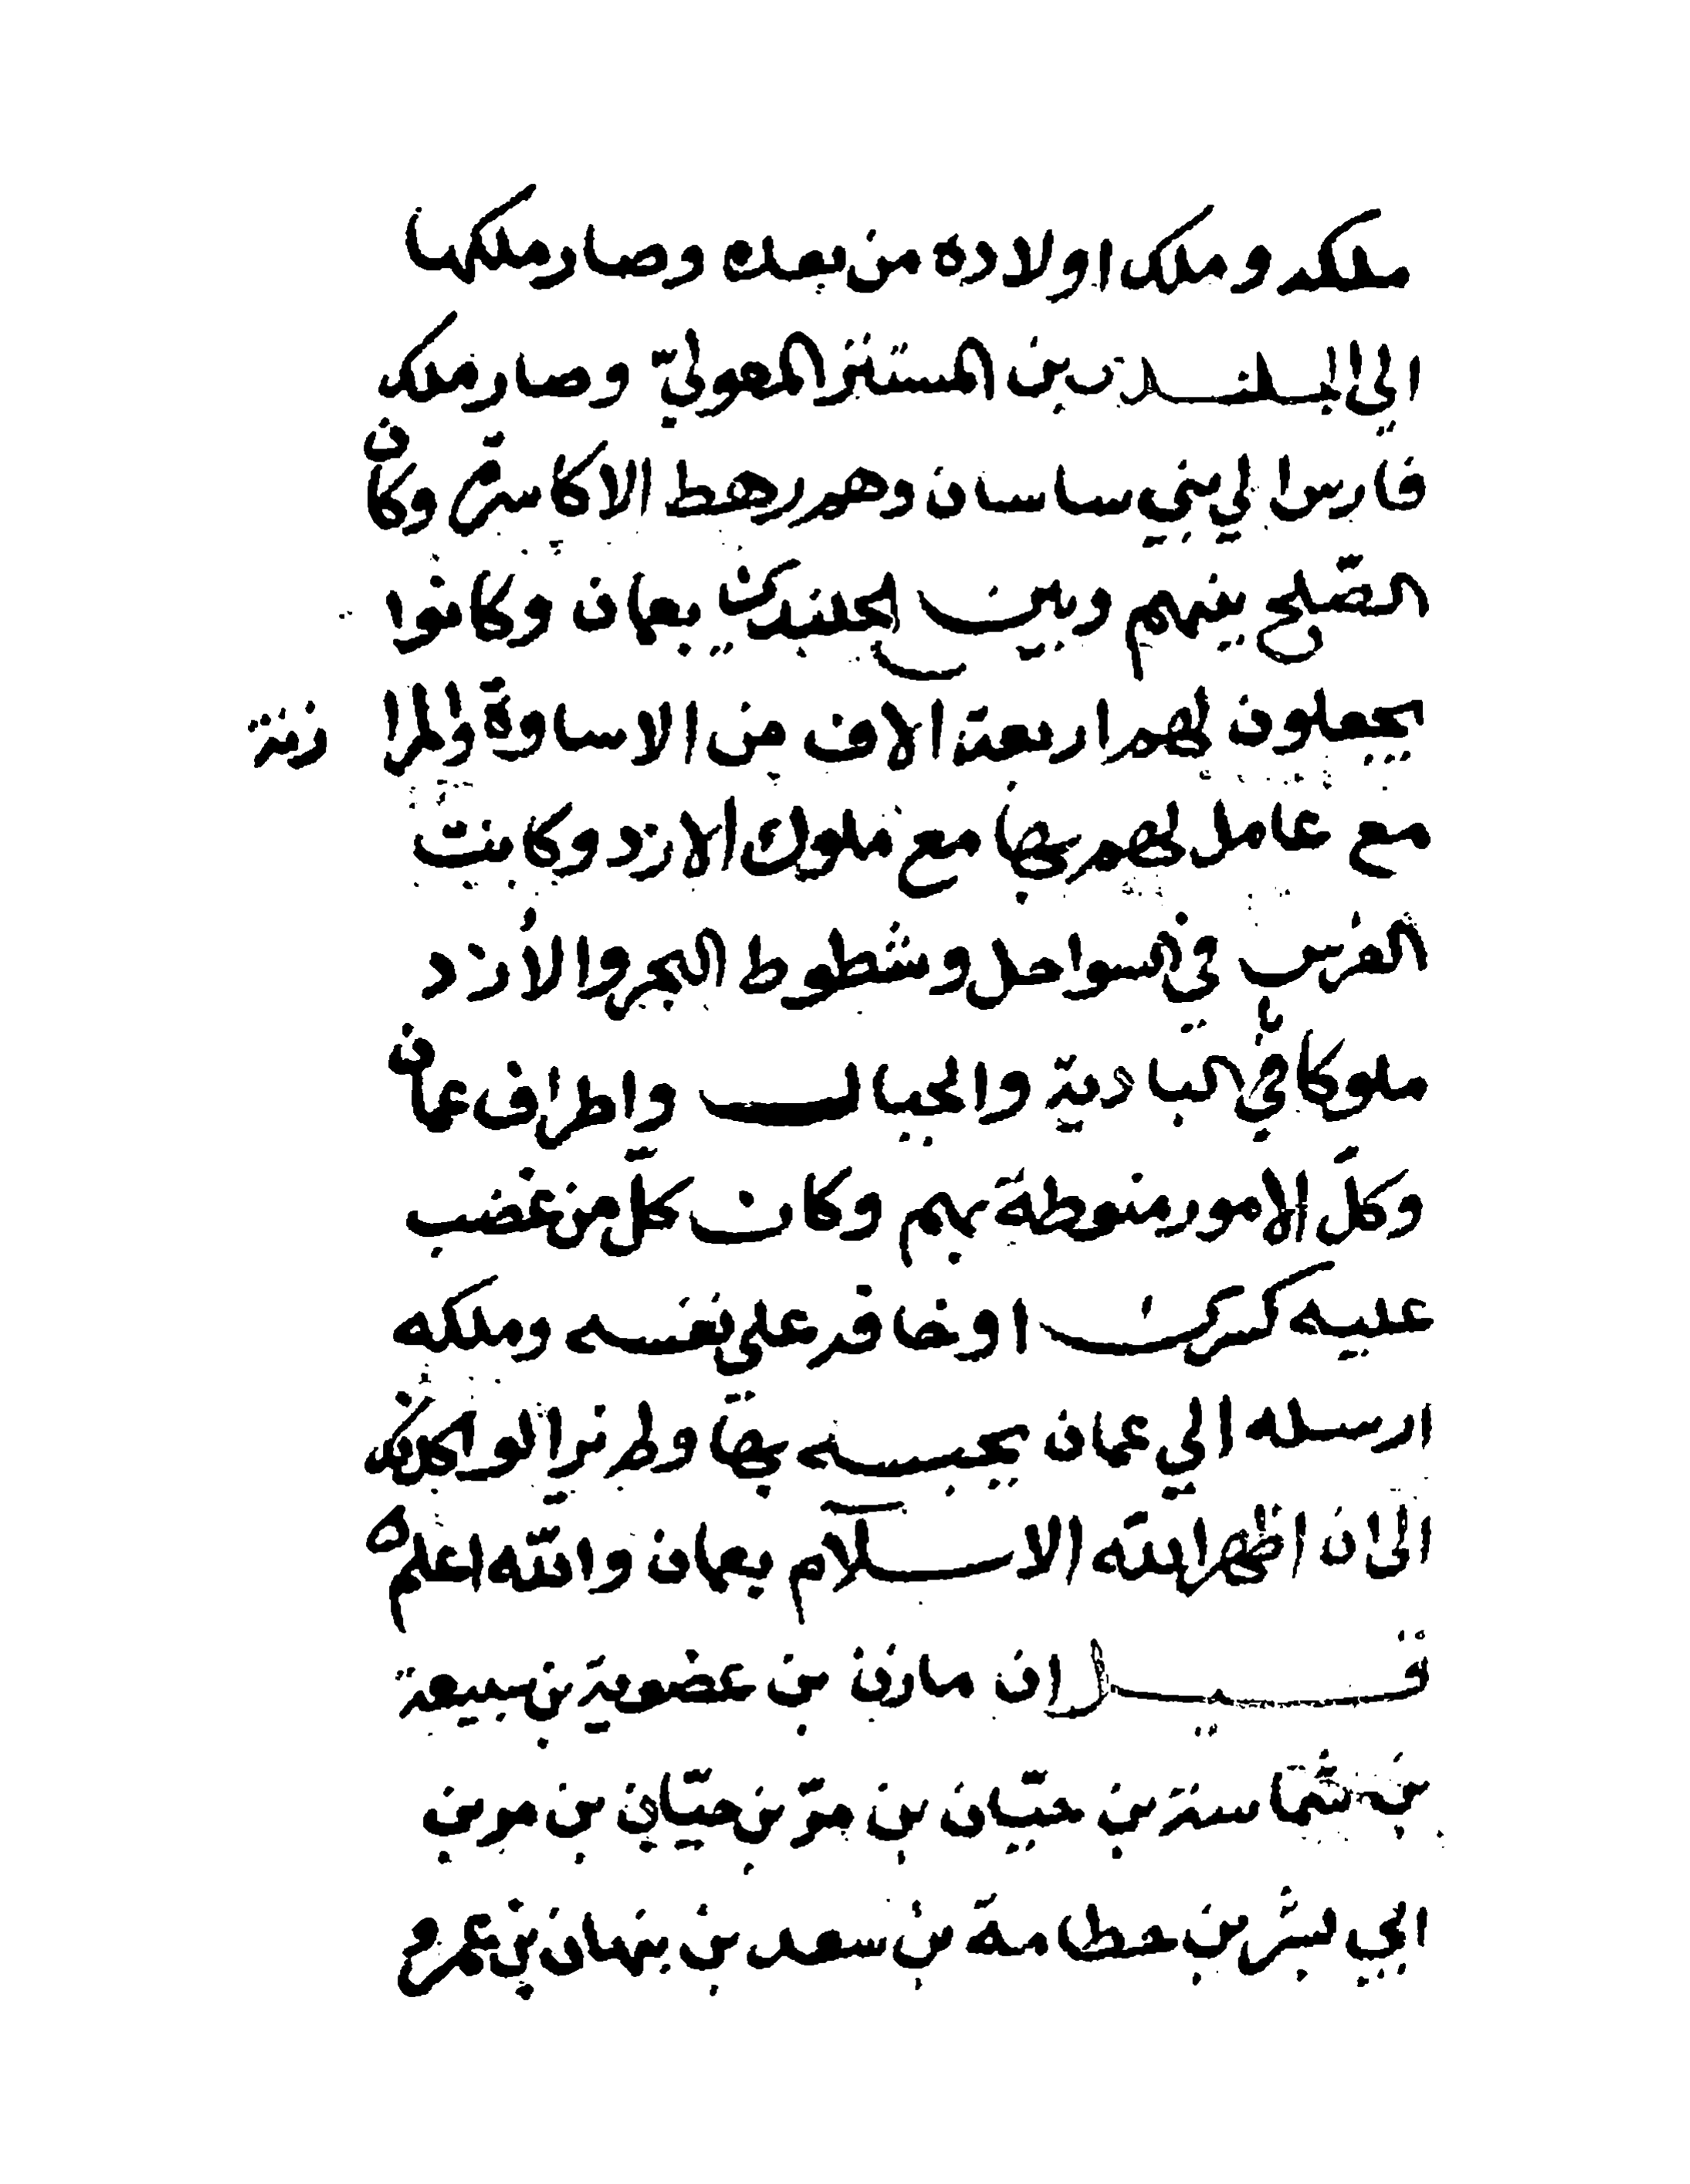 ملكه وملك اولاده من بعده وصار ملكها
الي الجلندي بن المستتر المعولي وصار ملك
فارس الي بني ساسان وهم رهط الاكاسرة وكان
الصلح بينهم وبين الجلندي بعمان وكانوا
يجعلون لهم اربعة الاف من الاساورة والمرا زبة
مع عامل لهم بها مع ملوك الازد وكانت
الفرس في السواحل وشطوط البحر والازد
ملوكا في البادية والجبال واطراف عمان
وكل الامور منوطة بهم وكان كل من غضب
عليه كسري او خافه علي نفسه وملكه
ارسله الي عمان يحبسه بها ولم يزالوا كذلك
الي ان اظهر الله الاسلام بعمان والله اعلم
قيل ان مازن بن غضوبة بن سبيعة
بن شماسة بن حيان بن مر بن حيان بن مر بن
ابي بشر بن حطامة بن سعد بن نبهان بن عمرو